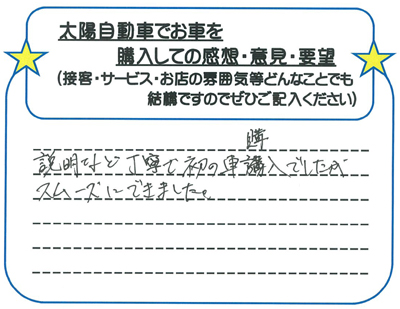 太陽自動車でお車を
購入しての感想・意見・要望
(接客・サービス・お店の雰囲気等どんなことでも
結構ですのでぜひご記入ください)
購
説明など丁寧で初の車講入でしたが
スムーズにできました。